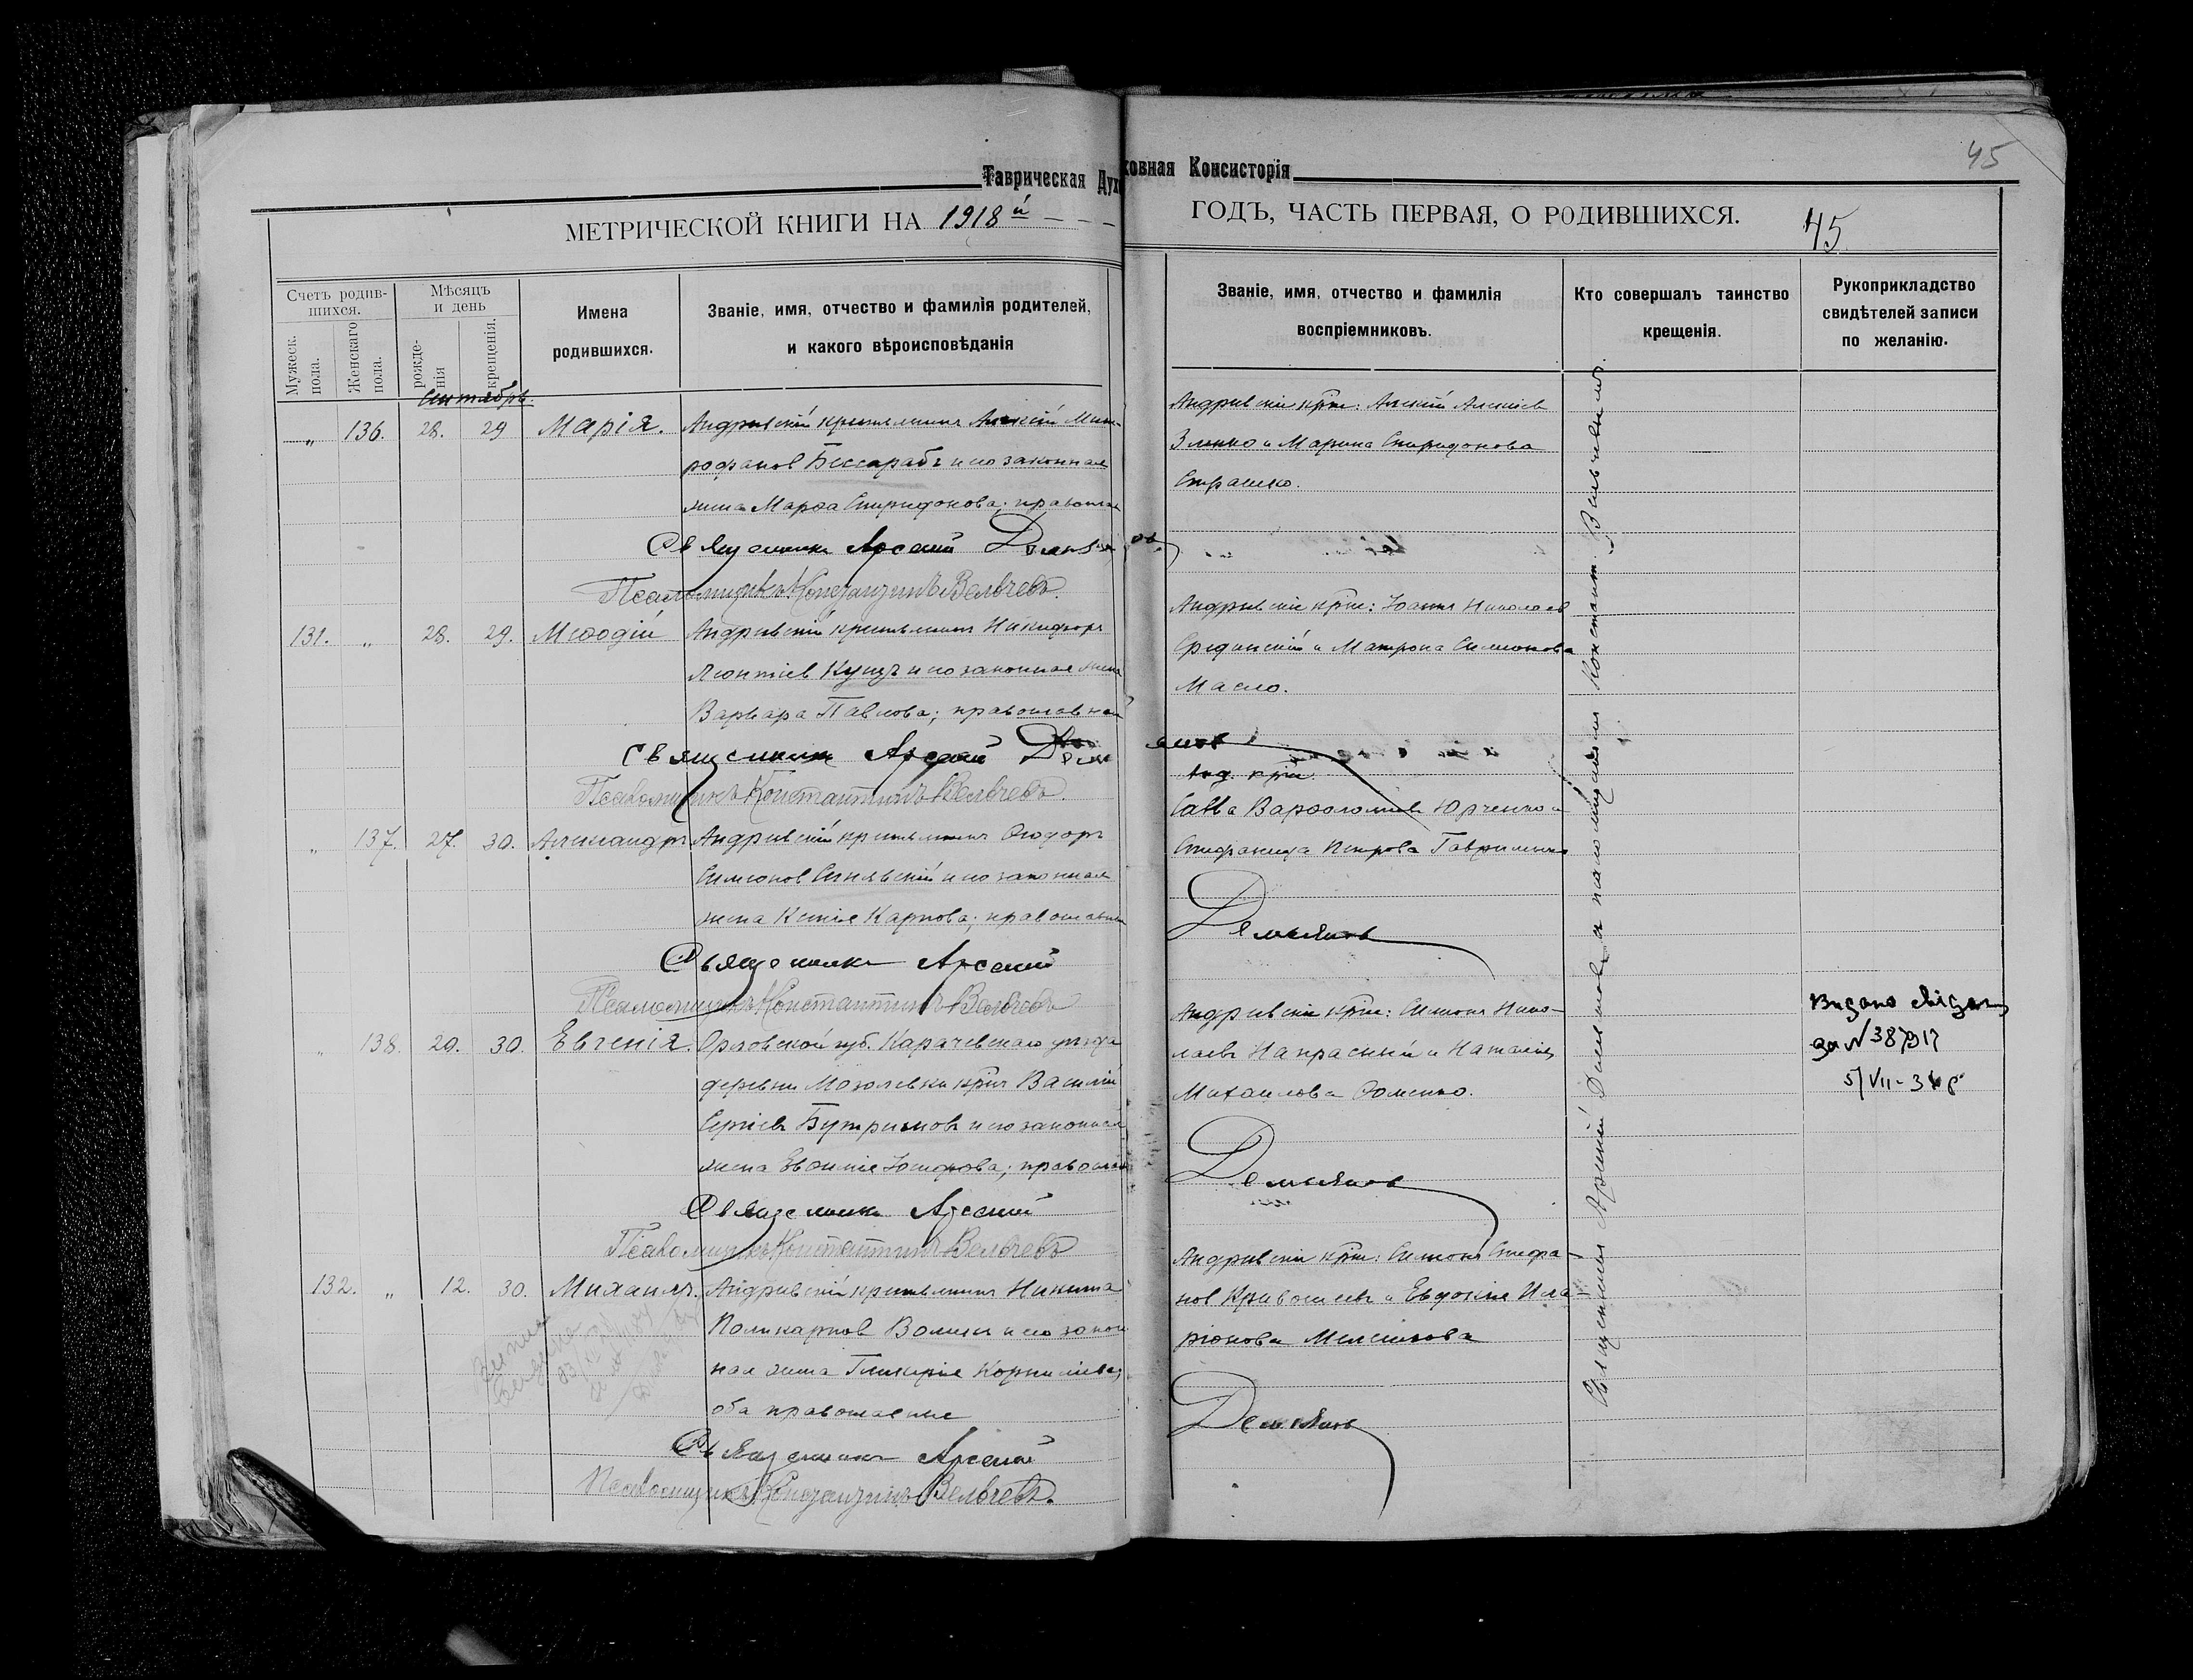 45
Таврическая Духовная Консисторія
МЕТРИЧЕСКОЙ КНИГИ НА 1918й ГОДЪ, ЧАСТЬ ПЕРВАЯ, О РОДИВШИХСЯ.
45
Счетъ родив-
шихся.
Мужеск.
пола.
Женскаго
пола.
Мѣсяцъ
и день
рожде-
нія
крещенія.
Имена
родившихся.
Званіе, имя, отчество и фамилія родителей,
и какого вѣроисповѣданія
Званіе, имя, отчество и фамилія
воспріемниковъ.
Кто совершалъ таинство
крещенія.
Рукоприкладство
свидѣтелей записи
по желанію.
Сентябрь.
„ 136. 28. 29 Марія. Андреевскій крестьянинъ Алексій Мит-
рофанов Бессарабъ и его законная
жена Марѳа Спиридонова; православ
Священникъ Арсений Демьянов
Псаломщикъ Константинъ Вельчевъ.
Андреевскіе кр̃не: Алексій Алексіев
Зленко и Марина Спиридонова
Страшко.
131. „ 28. 29. Меѳодій Андреевскій крестьянинъ Никифоръ
Леонтіев Куцъ и его законная жена
Варвара Павлова; православные
Священникъ Арсений Демьянов
Псаломщикъ Константинъ Вельчевъ.
Андреевскіе кр̃не: Іоаннъ Николаев
Срединскій и Матрона Симеонова
Масло.
„ 137. 27. 30. Александра Андреевскій крестьянинъ Ѳеодоръ
Симеонов Синявскій и его законная
жена Ксенія Карпова; православные
Священникъ Арсений Демьянов
Псаломщикъ Константинъ Вельчевъ
Анд. кр̃не
Савва Варѳоломеев Юрченко и
Стефанида Петрова Гавриленко
„ 138. 20. 30. Евгенія. Орловской губ. Карачевскаго уѣзда
деревни Мозолевки кр̃нъ Василій
Сергіевъ Бутримовъ и его законная
жена Евѳимія Іосифова; православ
Священникъ Арсений Демьянов
Псаломщикъ Константинъ Вельчевъ
Андреевскіе кр̃не: Симеонъ Нико-
лаевъ Накрасный и Наталія
Михаилова Ѳоменко.
Видано свідоц
за № 387917
5/VII-34р
132. „ 12. 30. Михаилъ. Андреевскій крестьянинъ Никита
Поликарпов Волик и его закон
ная жена Гликерія Корниліева;
оба православные
Священникъ Арсений Демьянов
Псаломщикъ Константинъ Вельчевъ.
Андреевскіе кр̃не: Симеонъ Стефа-
нов Кривошеевъ и Евдокія Ила
ріонова Мелешкова
Священникъ Арсеній Демьяновъ и псаломщикъ Констант. Вельчевъ.